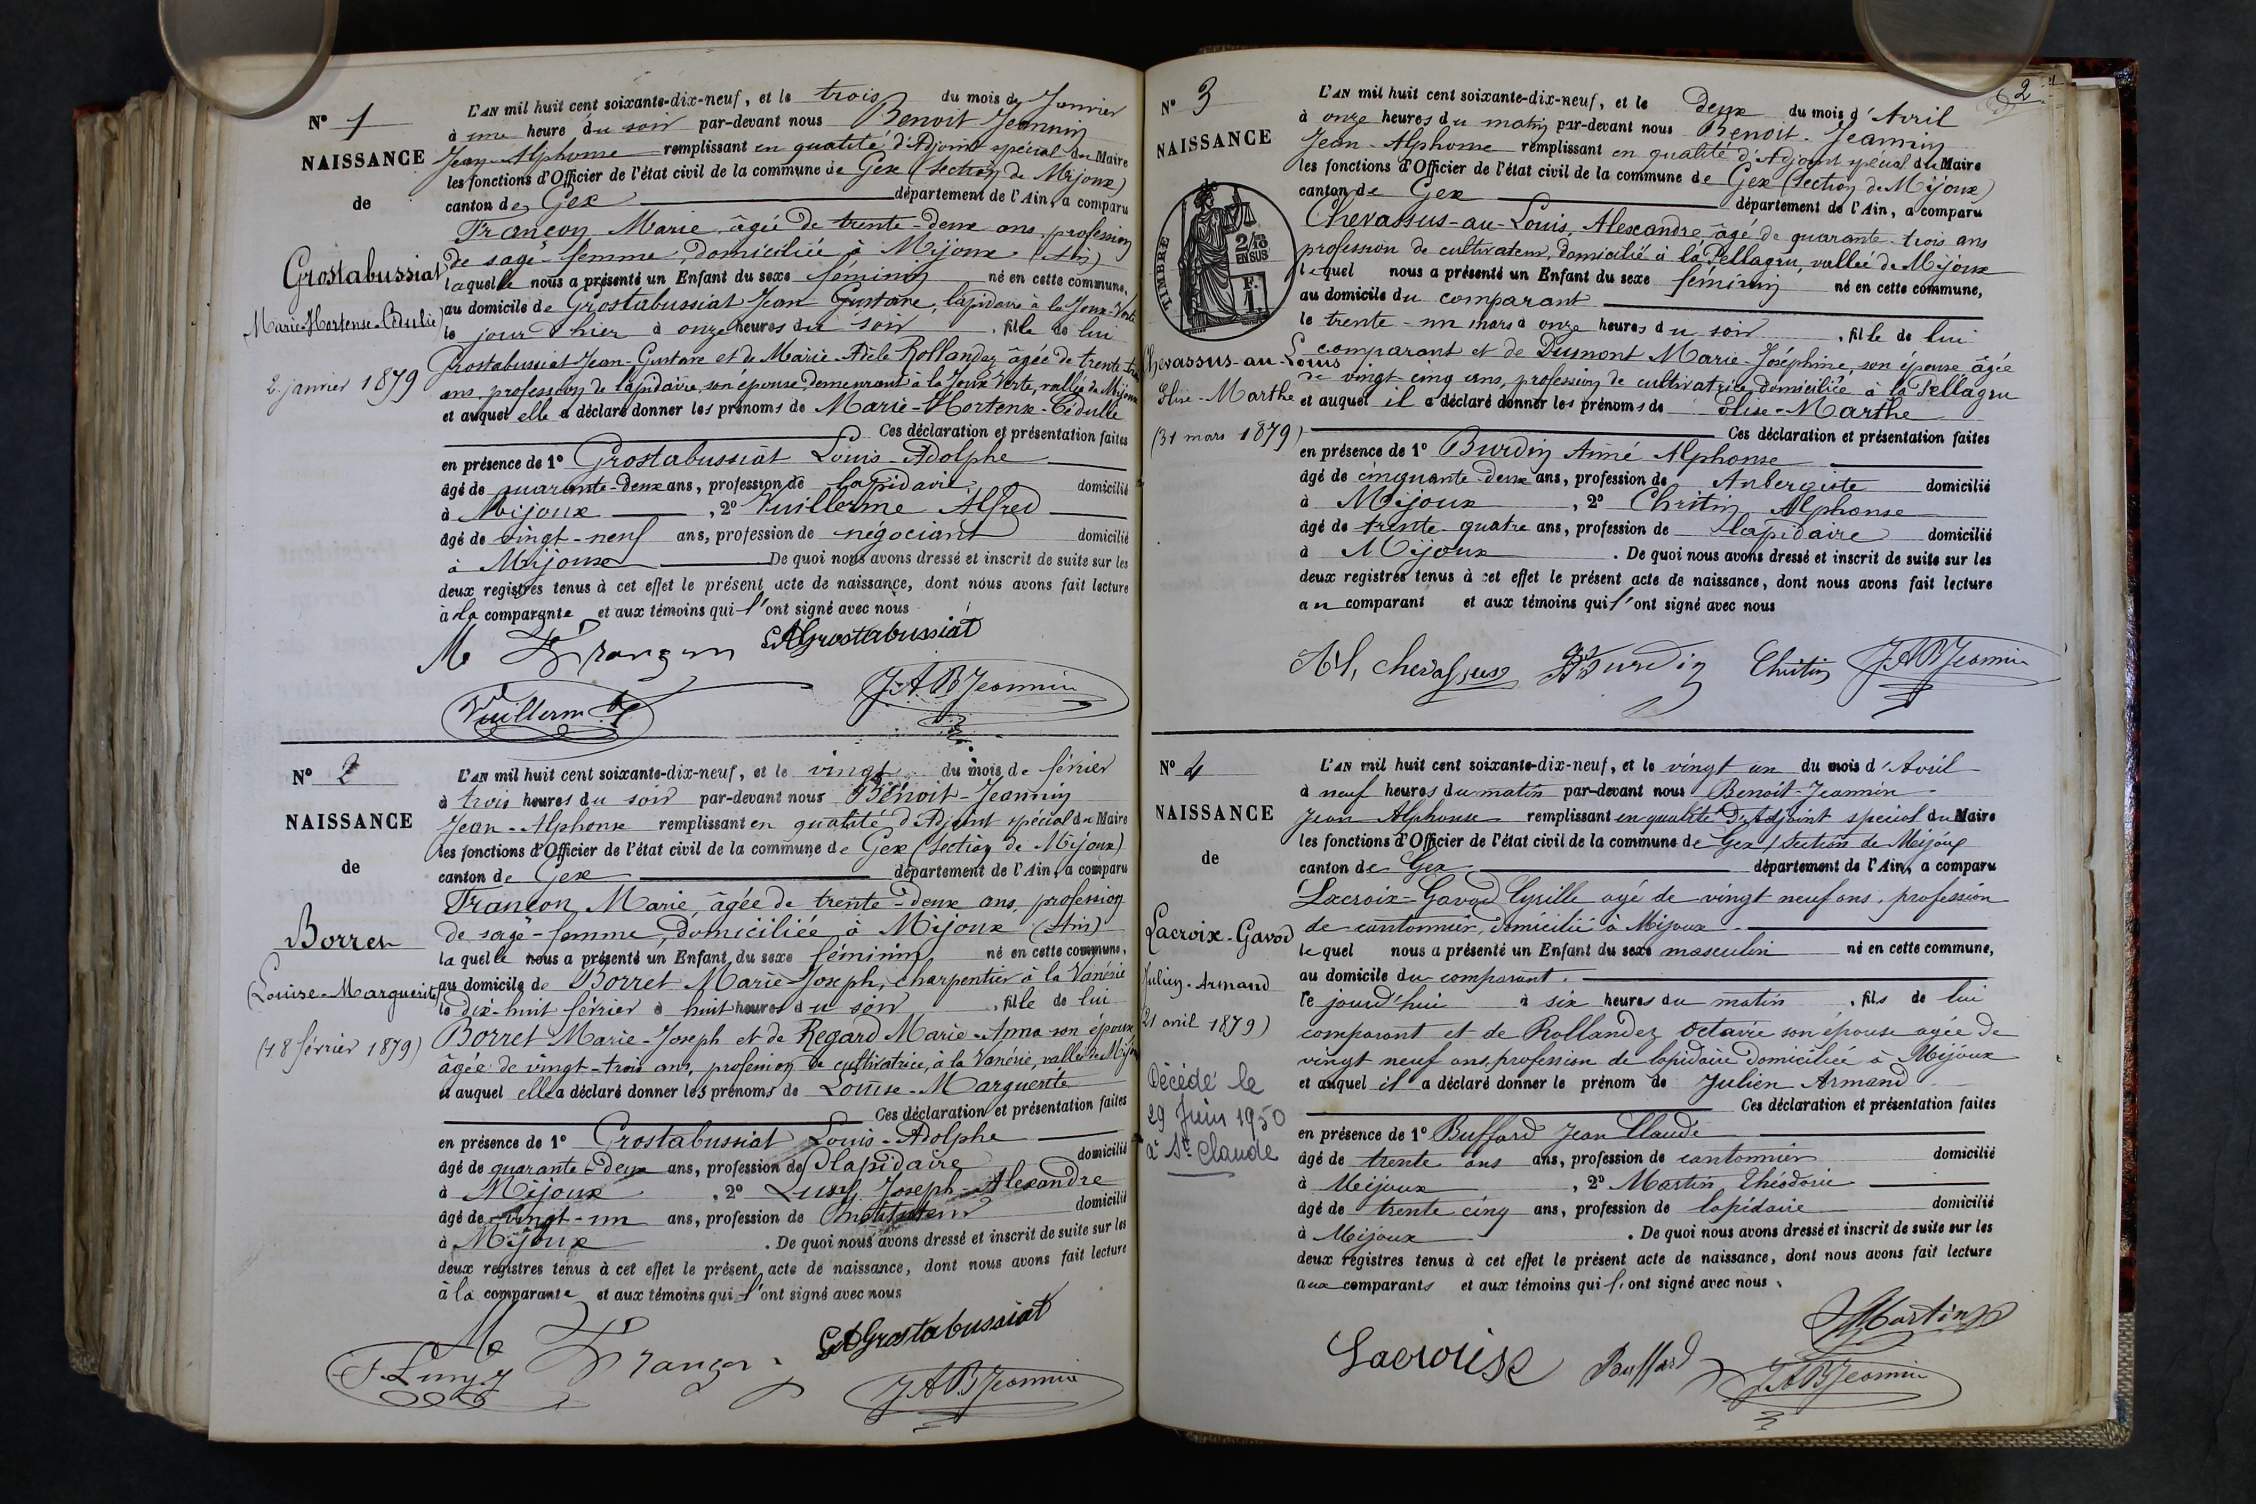 N° 1
NAISSANCE
de
Grostabussiat
Marie-Hortense-Cédulie)
2 janvier 1879
L'AN mil huit cent soixante-dix-neuf, et le trois du mois de Janvier
à une heure du soir par-devant nous Benoit-Jeannin
Jean-Alphonse remplissant en qualité d'Adjoint spécial du Maire
les fonctions d'Officier de l'état civil de la commune de Gex (section de Mijoux)
canton de Gex département de l'Ain, a comparu
Françon Marie âgée de trente-deux ans, profession
de sage-femme, domiciliée à Mijoux (Ain)
laquelle nous a présenté un Enfant du sexe féminin né en cette commune,
au domicile de Grostabussiat Jean Gustave, lapidaire à la Joux-Verte
le jour d'hier à onze heures du soir, fille de lui
Grostabussiat Jean-Gustave et de Marie-Adèle Rollandez âgée de trente-trois
ans, profession de lapidaire, son épouse, demeurant à la Joux Verte, vallée de Mijoux
et auquel elle a déclaré donner les prénoms de Marie-Hortense-Cédulie
Ces déclaration et présentation faites
en présence de 1° Grostabussiat Louis-Adolphe
âgé de quarante-deux ans, profession de lapidaire domicilié
à Mijoux, 2° Vuillerme Alfred
âgé de vingt-neuf ans, profession de négociant domicilié
à Mijoux De quoi nous avons dressé et inscrit de suite sur les
deux registres tenus à cet effet le présent acte de naissance, dont nous avons fait lecture
à la comparante et aux témoins qui l'ont signé avec nous
M Françon LAGrostabussiat
Vuillerme J.A.BJeannin
N° 2
NAISSANCE
de
Borret
(Louise-Marguerite)
(18 février 1879)
L'AN mil huit cent soixante-dix-neuf, et le vingt du mois de février
à trois heures du soir par-devant nous Benoit-Jeannin
Jean-Alphonse remplissant en qualité d'Adjoint spécial du Maire
les fonctions d'Officier de l'état civil de la commune de Gex (section de Mijoux)
canton de Gex département de l'Ain, a comparu
Françon Marie âgée de trente-deux ans, profession
de sage-femme, domiciliée à Mijoux (Ain)
laquelle nous a présenté un Enfant du sexe féminin né en cette commune,
au domicile de Borret Marie-Joseph, charpentier à la Vanérie
le dix-huit février à huit heures du soir, fille de lui
Borret Marie-Joseph et de Regard Marie-Anna son épouse
âgée de vingt-trois ans, profession de cultivatrice, à la Vanérie, vallée de Mijoux
et auquel elle a déclaré donner les prénoms de Louise-Marguerite
Ces déclaration et présentation faites
en présence de 1° Grostabussiat Louis-Adolphe
âgé de quarante-deux ans, profession de lapidaire domicilié
à Mijoux, 2° Luny Joseph-Alexandre
âgé de vingt-un ans, profession de Instituteur domicilié
à Mijoux. De quoi nous avons dressé et inscrit de suite sur les
deux registres tenus à cet effet le présent acte de naissance, dont nous avons fait lecture
à la comparante et aux témoins qui l'ont signé avec nous
M Françon LAGrostabussiat
J. Luny J.A.BJeannin
2
N° 3
NAISSANCE
de
TIMBRE
2/10 EN SUS
F. 1
Chevassus-au-Louis
Elise-Marthe
(31 mars 1879)
L'AN mil huit cent soixante-dix-neuf, et le deux du mois d'Avril
à onze heures du matin par-devant nous Benoit-Jeannin
Jean-Alphonse remplissant en qualité d'Adjoint spécial du Maire
les fonctions d'Officier de l'état civil de la commune de Gex (section de Mijoux)
canton de Gex département de l'Ain, a comparu
Chevassus-au-Louis, Alexandre âgé de quarante-trois ans
profession de cultivateur, domicilié à la Pellagru, vallée de Mijoux
lequel nous a présenté un Enfant du sexe féminin né en cette commune,
au domicile du comparant
le trente-un mars à onze heures du soir, fille de lui
comparant et de Dumont Marie-Joséphine, son épouse âgée
de vingt-cinq ans, profession de cultivatrice, domiciliée à la Pellagru
et auquel il a déclaré donner les prénoms de Elise-Marthe
Ces déclaration et présentation faites
en présence de 1° Burdin Aimé Alphonse
âgé de cinquante-deux ans, profession de Aubergiste domicilié
à Mijoux, 2° Christin Alphonse
âgé de trente-quatre ans, profession de lapidaire domicilié
à Mijoux. De quoi nous avons dressé et inscrit de suite sur les
deux registres tenus à cet effet le présent acte de naissance, dont nous avons fait lecture
au comparant et aux témoins qui l'ont signé avec nous
Al, Chevassus Burdin Christin J.A.BJeannin
N° 4
NAISSANCE
de
Lacroix-Gavod
Julien-Armand
21 avril 1879)
Décédé le
29 Juin 1950
à St Claude
L'AN mil huit cent soixante-dix-neuf, et le vingt un du mois d'Avril
à neuf heures du matin par-devant nous Benoit-Jeannin
Jean Alphonse remplissant en qualité d'Adjoint spécial du Maire
les fonctions d'Officier de l'état civil de la commune de Gex (section de Mijoux
canton de Gex département de l'Ain, a comparu
Lacroix-Gavod Cyrille agé de vingt neuf ans, profession
de cantonnier, domicilié à Mijoux
lequel nous a présenté un Enfant du sexe masculin né en cette commune,
au domicile du comparant.
le jourd'hui à six heures du matin, fils de lui
comparant et de Rollandez Octavie son épouse agée de
vingt neuf ans, profession de lapidaire domiciliée à Mijoux
et auquel il a déclaré donner le prénom de Julien Armand
Ces déclaration et présentation faites
en présence de 1° Buffard Jean Claude
âgé de trente ans ans, profession de cantonnier domicilié
à Mijoux, 2° Martin Théodore
âgé de trente cinq ans, profession de lapidaire domicilié
à Mijoux. De quoi nous avons dressé et inscrit de suite sur les
deux registres tenus à cet effet le présent acte de naissance, dont nous avons fait lecture
aux comparants et aux témoins qui l'ont signé avec nous.
Martin
Lacroix Buffard J.A.BJeannin